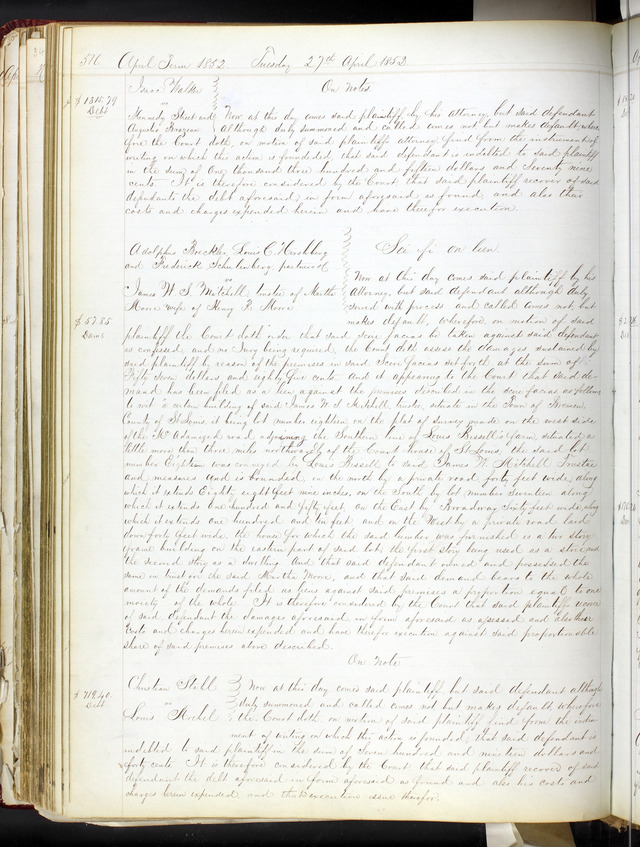 516 April Term 1852 Tuesday 27th April 1852
Isaac Walker On Notes
vs
$1315.79 Debt
Kennedy Steel and Now at this day comes said plaintiff by his attorney, but said defendant
Augustus Brazeau although duly summoned and called comes not but makes default, where
fore the Court doth, on motion of said plaintiffs attorney find from the instrument of
writing on which this action is founded, that said defendant is indebted to said plaintiff
in the sum of one thousand three hundred and fifteen dollars and seventy nine
cents. It is therefore considered by the Court that said plaintiff recover of said
defendants the debt aforesaid in form aforesaid as found, and also their
costs and charges expended herein and have therefor execution.
Adolphus Boeckler, Louis C. Hirshberg Sci fi on lien
and Frederick Schulenberg, partners &c
vs Now at this day comes said plaintiff by his
James W. S. Mitchell, trustee of Martha attorney, but said defendant although duly
Moore wife of Henry F. Moore served with process and called comes not, but
$57.85 Dams
makes default, wherefore, on motion of said
plaintiff the Court doth order that said scire facias be taken against said defendant
as confessed, and no Jury being required, the Court doth assess the damages sustained by
said plaintiff by reason of the premises in said Scire facias set forth at the sum of
Fifty seven dollars and eighty five cents. And it appears to the Court that said de-
mand has been filed as a lien against the premises described in the scire facias as follows
to wit: a certain building of said James W. S. Mitchell, trustee, situate in the Town of Bremen,
County of St Louis, it being lot number eighteen on the plat of survey made on the west side
of the McAdamized road, adjoining the Southern line of Lewis Bissell's farm, situated a
little more than three miles northwardly of the Court house of St Louis, the said lot
number Eighteen was conveyed by Louis Bissell to said James W. Mitchell Trustee
and measures and is bounded, on the north by a private road, forty feet wide, along
which it extends Eighty eight feet nine inches, on the South by lot number seventeen along
which it extends one hundred and fifty feet, on the East by Broadway Sixty feet wide along
which it extends one hundred and ten feet and on the West by a private road laid
down forty feet wide, the house for which the said lumber was furnished is a two story
frame building on the eastern part of said lot, the first story being used as a store and
the second story as a dwelling. And that said defendant owned and possessed the
same in trust for the said Martha Moore, and that said demand bears to the whole
amount of the demands filed as liens against said premises a proportion equal to one
moiety of the whole. It is therefore considered by the Court that said plaintiffs recover
of said defendant the damages aforesaid in form aforesaid as assessed and also their
costs and charges herein expended and have therefor execution against said proportionable
share of said premises above described.
On Note
Christian Stehl Now at this day comes said plaintiff but said defendant although
$719.40 Debt
vs duly summoned and called comes not but makes default, wherefore
Louis the Court doth on motion of said plaintiff find from the instru
ment of writing on which this action is founded, that said defendant is
indebted to said plaintiff in the sum of Seven hundred and nineteen dollars and
forty cents. It is therefore considered by the Court that said plaintiff recover of said
defendant the debt aforesaid in form aforesaid as found and also his costs and
charges herein expended and that execution issue therefor.